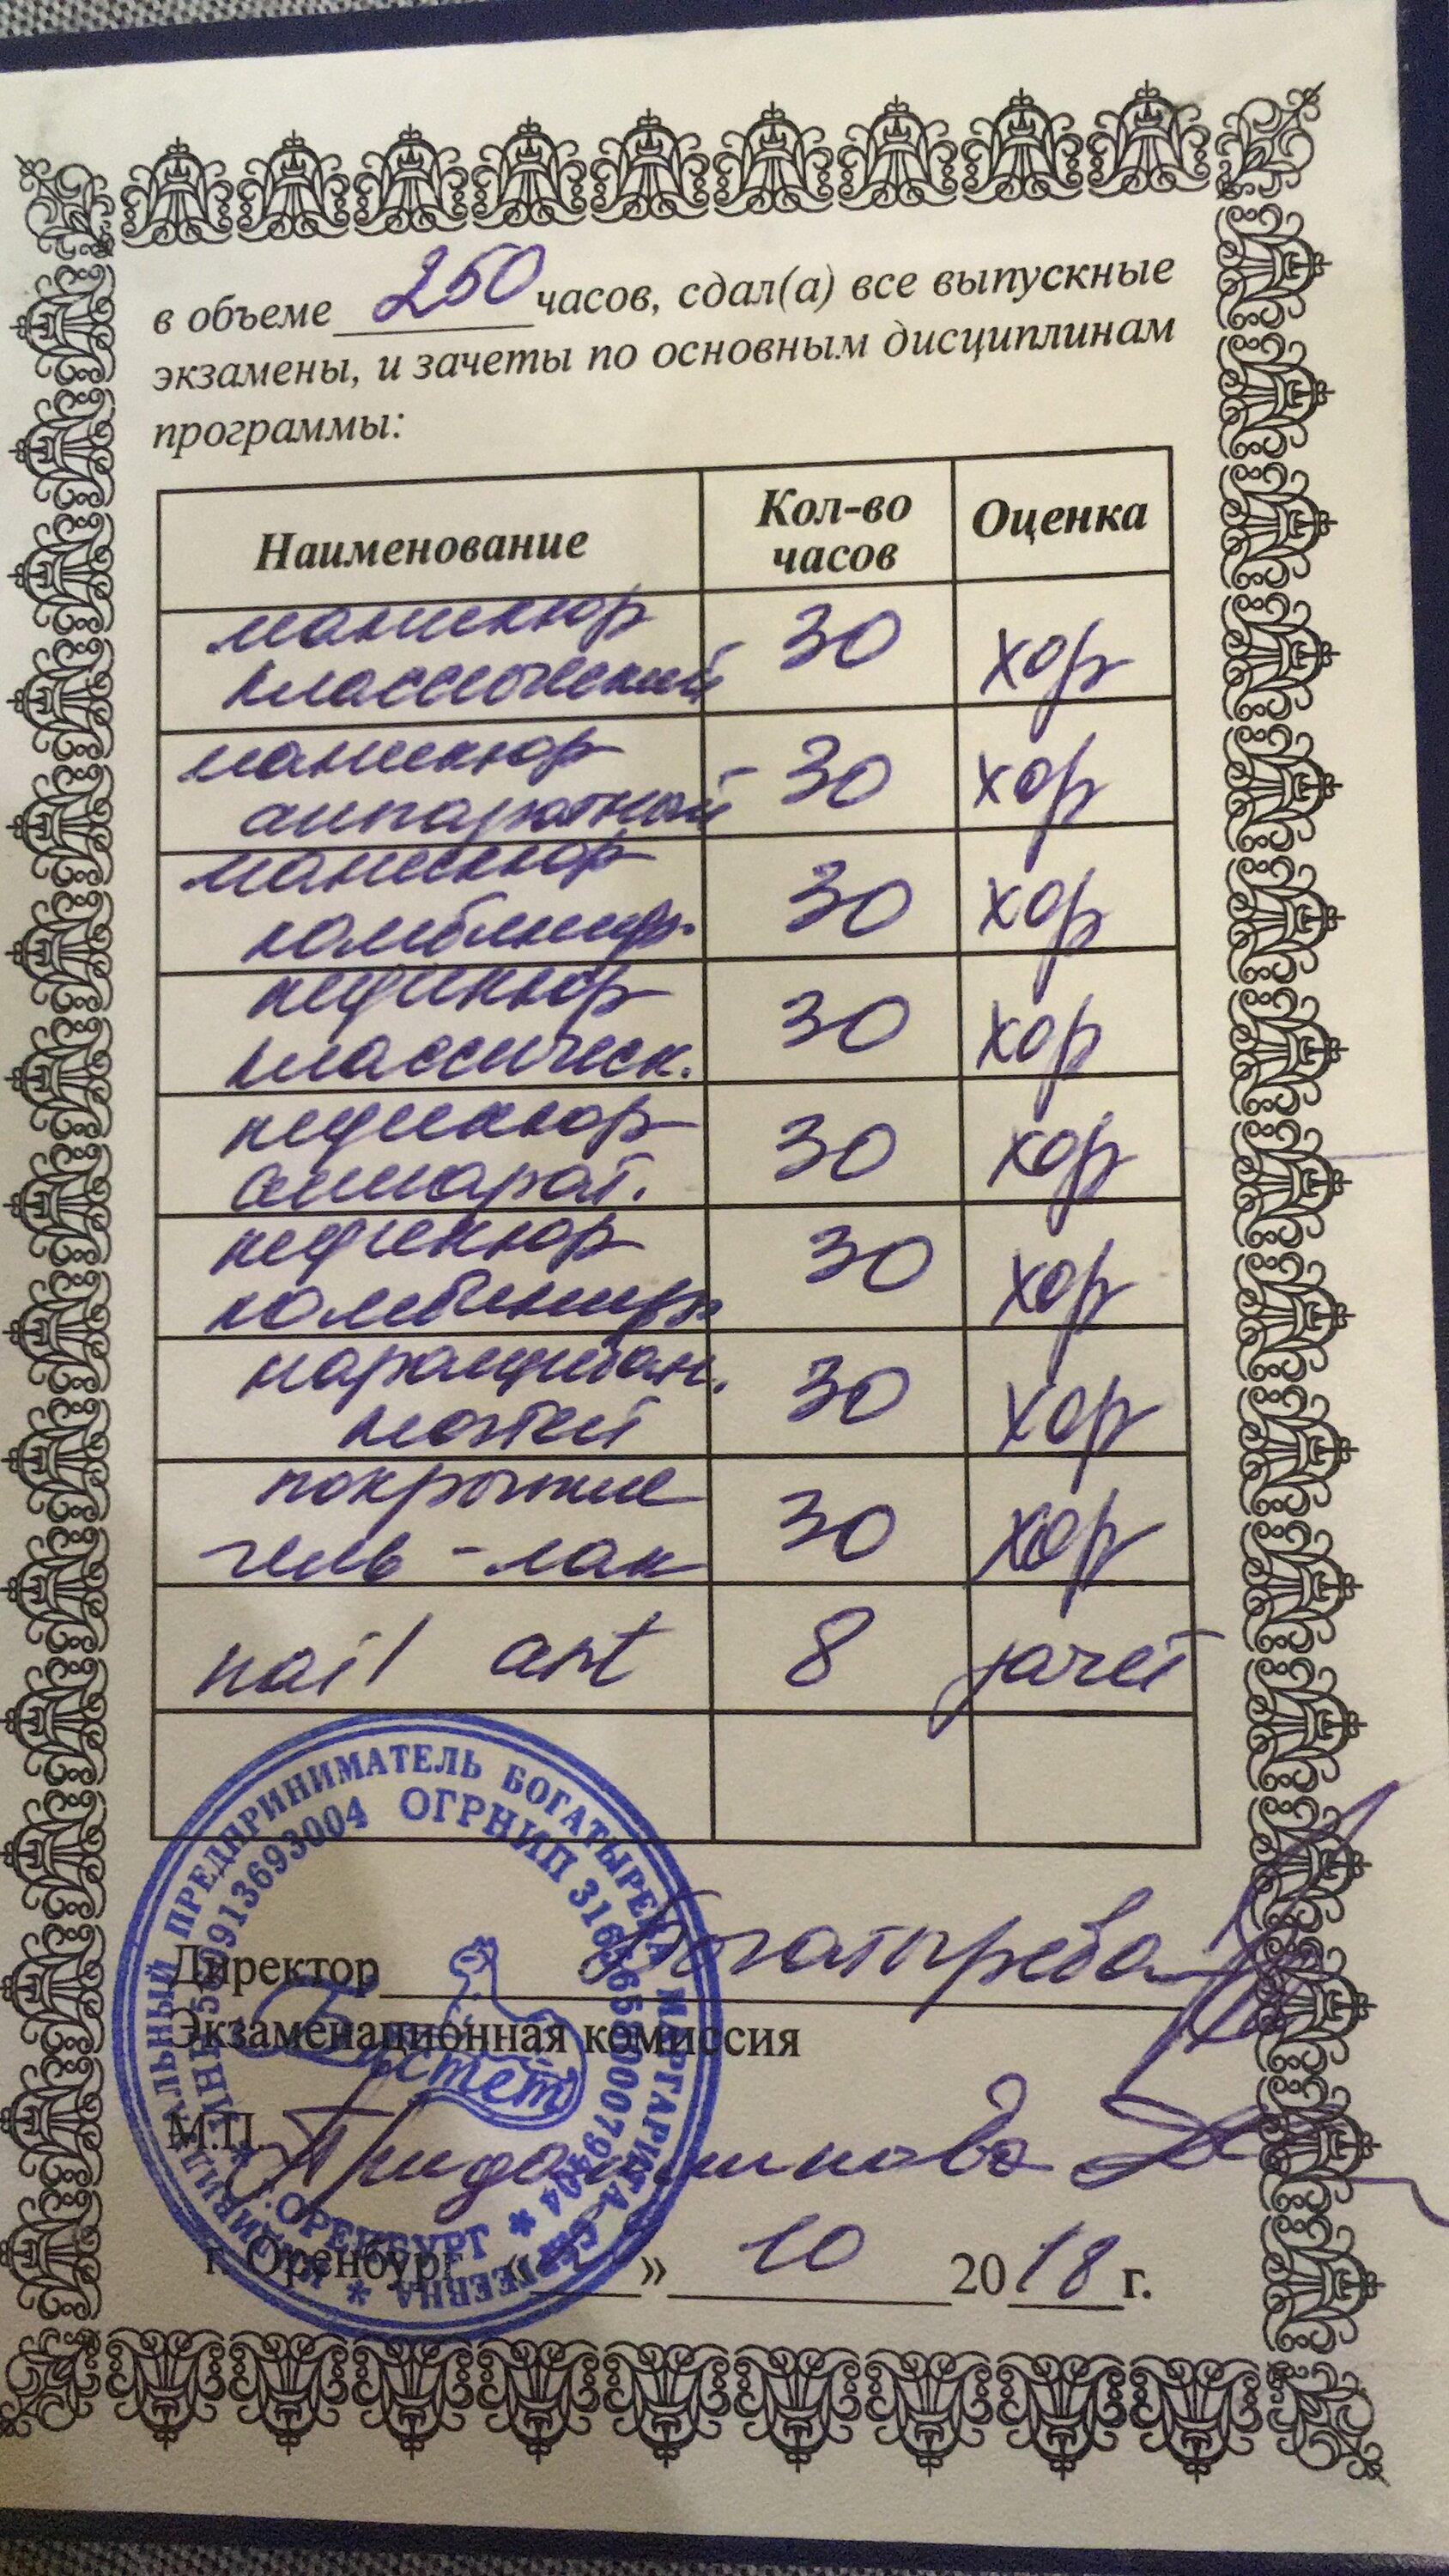 в объеме 250 часов, сдал(а) все выпускные
экзамены, и зачеты по основным дисциплинам
программы:
Наименование Кол-во часов Оценка
маникюр
классический - 30 хор
маникюр
аппаратный - 30 хор
маникюр
комбинир. 30 хор
педикюр
классическ. 30 хор
педикюр
аппарат. 30 хор
педикюр
комбинир. 30 хор
наращиван.
ногтей 30 хор
покрытие
гель-лак 30 хор
nail art 8 зачет
Директор Богатырева
Экзаменационная комиссия
М.П.
г. Оренбург « » 10 2018 г.
ИНДИВИДУАЛЬНЫЙ ПРЕДПРИНИМАТЕЛЬ БОГАТЫРЕВА МАРГАРИТА СЕРГЕЕВНА
ОГРНИП
Г. ОРЕНБУРГ
Бастет